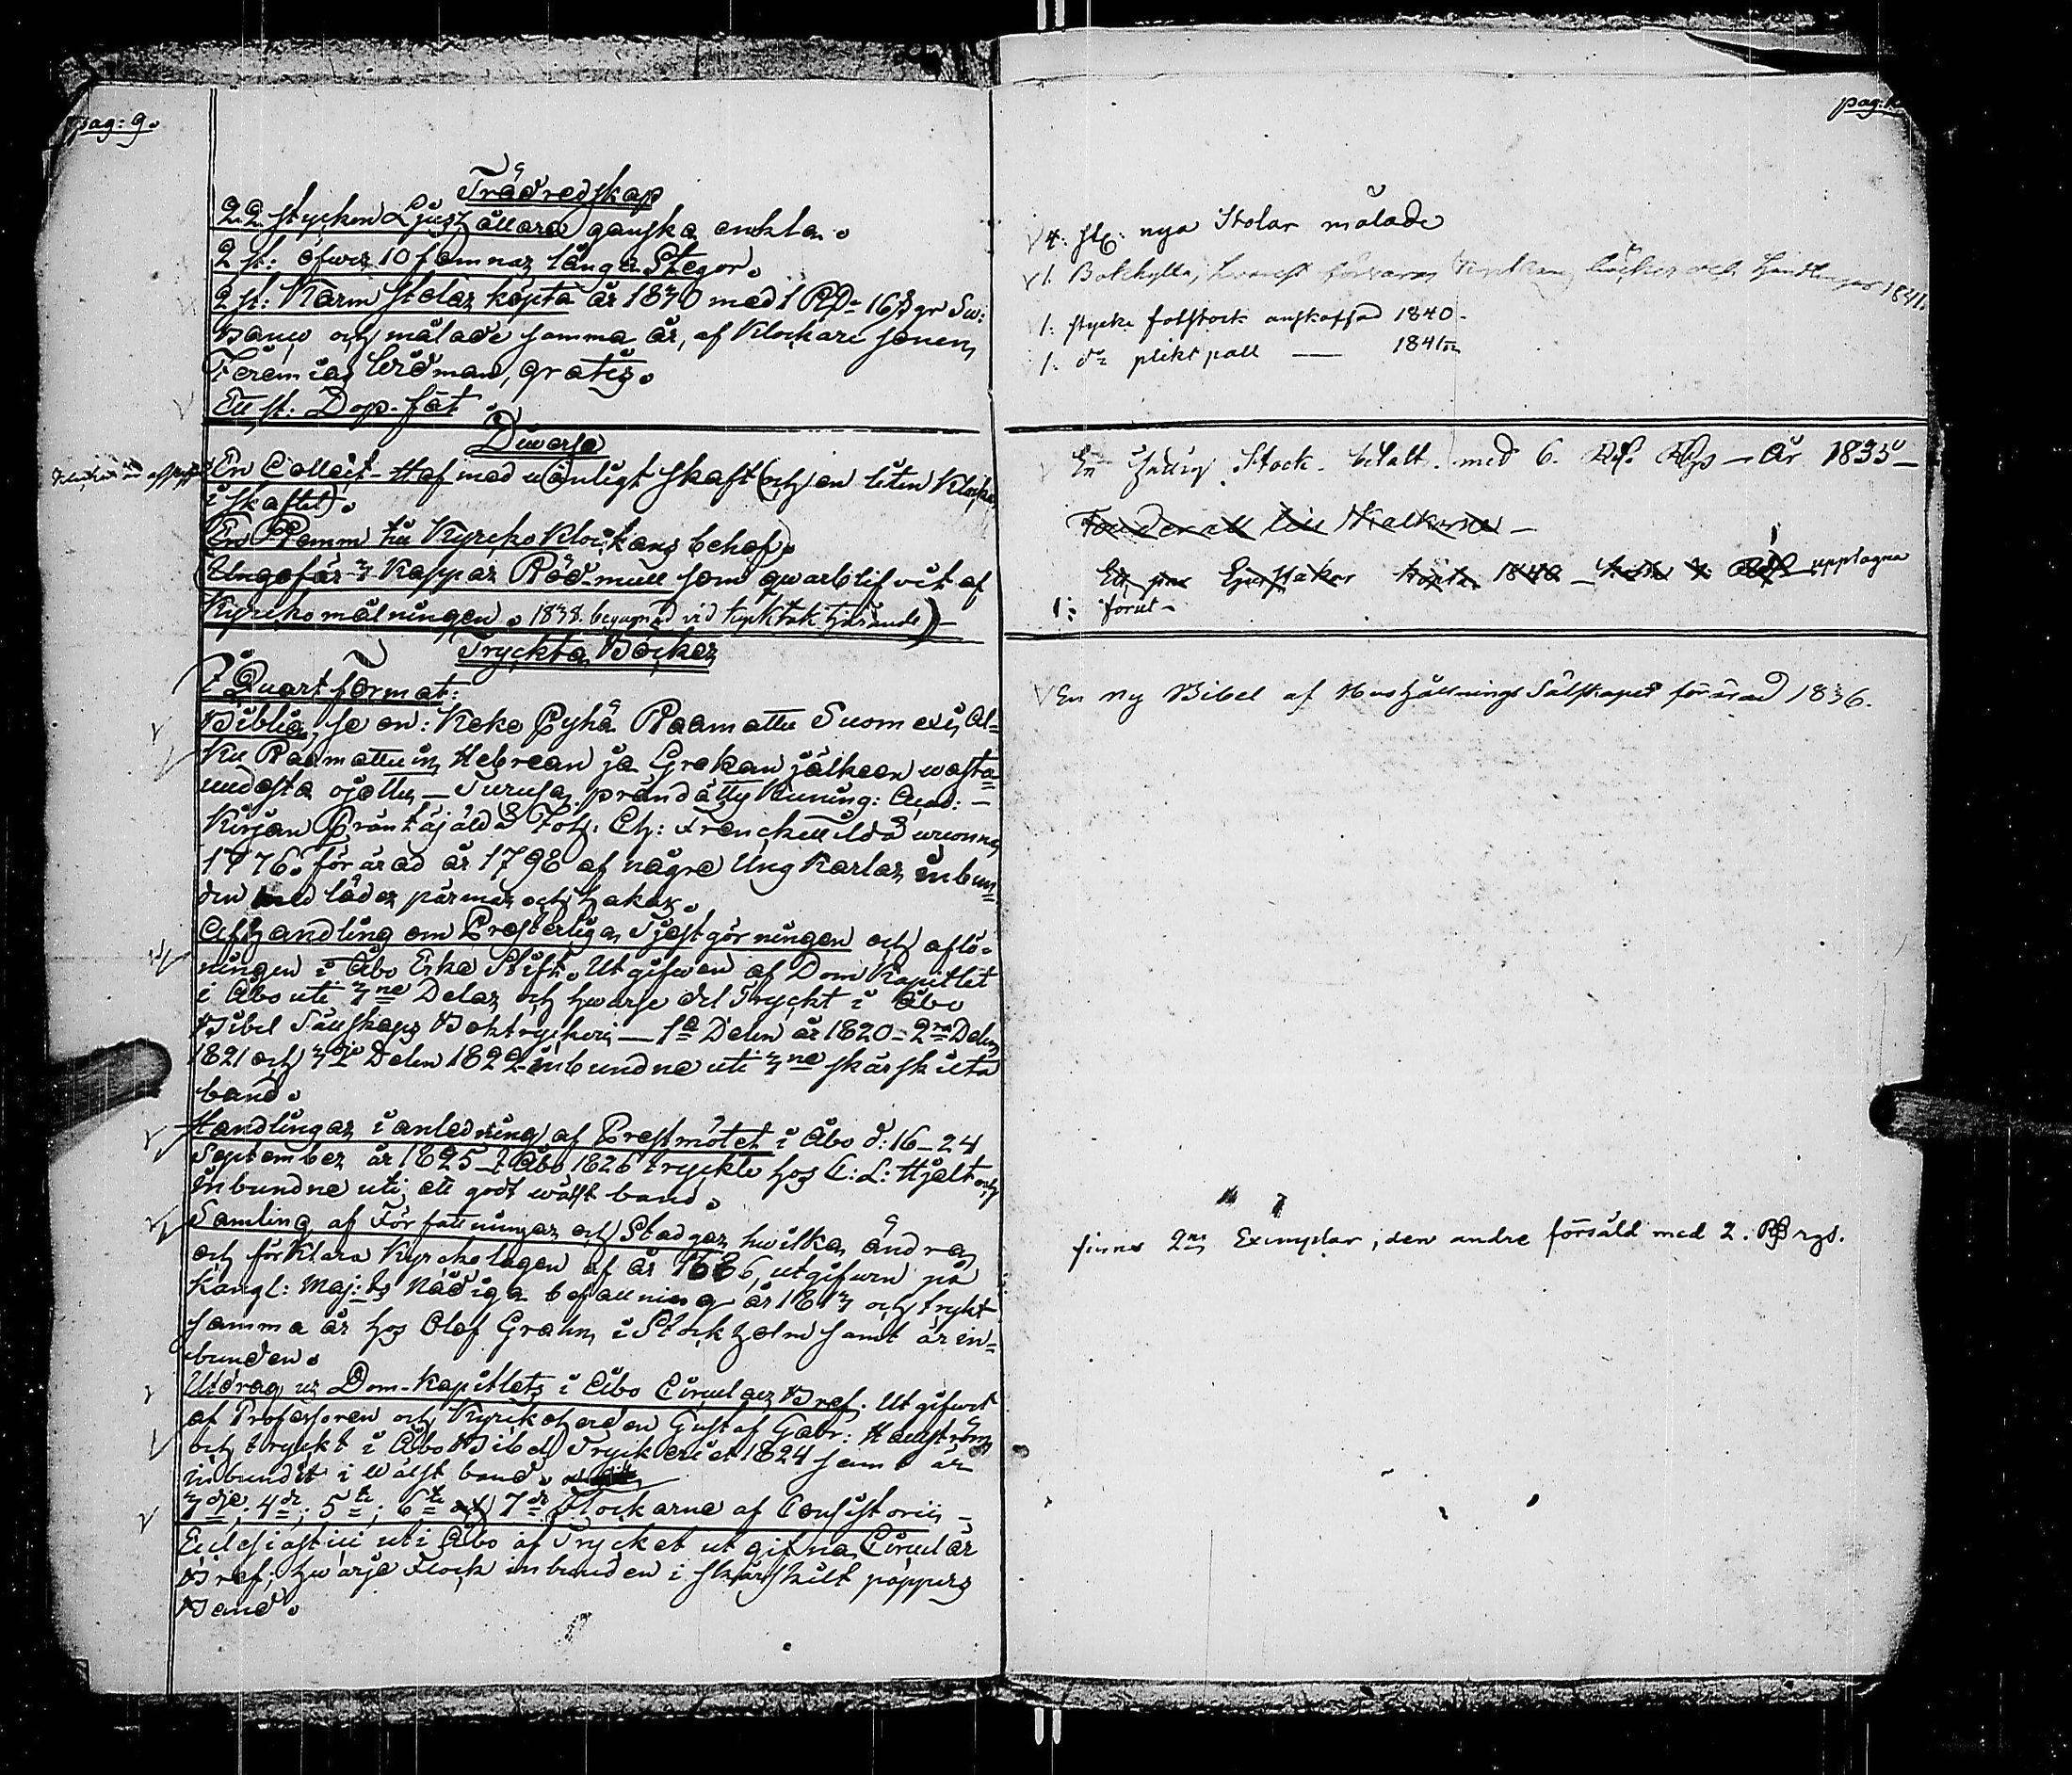 pag: 9.
Trädredskap
22 stycken Ljusställare ganska enkla.
2 st: öfwer 10 famnar långa Stegor.
2 st: Karm Stolar köpta år 1830 med 1 Rd 16 gr Sw:
Banco och målade samma år, af Klockare sonen
Jeremias Wirdman, gratis.
Ett st. Dop-fat
Diwerse
En Collect-Haf med wanligt skaft (och en liten Klocka
i skaftet).
En Remm till Kyrcko Klockans behof.
(Ungefär 3 Kappar Röd-mull som qwarblifvit af
Kyrckomålningen. 1838. begagnad vid kyrktak tjärande)
Tryckta Böcker
I Quart format:
Biblia, se on: Koko Pyhä Raamattu Suomexi, Al-
ku Raamattuin, Hebrean ja Grekan jälkeen wasta
uudesta ojettu — Turusa, prändätty Kuning: Acad: —
Kirjan Präntäjäldä Joh: Ch: Frenckellildä wuonna
1776. förärad år 1798 af någre Ung Karlar inbun-
den med läder pärmar och hakar.
Afhandling om Presterliga Tjestgörningen och aflö-
ningen i Åbo Erke Stift. Utgifwen af Dom Kapitlet
i Åbo uti 3ne Delar och hwarje del Tryckt i Åbo
Bibel Sällskaps Boktryckeri — 1a Delen år 1820 - 2ra Delen
1821 och 3dje Delen 1822 inbundne uti 3ne särskilta
band.
Handlingar i anledning af Prestmötet i Åbo d: 16-24
September år 1825 - I Åbo 1826 tryckte hos C: L: Hjelt och
inbundne uti ett godt wälskt band.
Samling af Författningar och Stadgar hwilka ändra
och förklara Kyrckolagen af år 1686, utgifwen på
Kongl: Maj:ts Nådiga befallning år 1813 och tryckt
samma år hos Olof Grahn i Stockholm samt är in-
bunden.
Utdrag ur Dom-kapitlets i Åbo Circulaer Bref. Utgifwet
af Professoren och Kyrckoherden Gustaf Gabr: Hällström
och tryckt i Åbo Bibel Tryckeriet 1824 samt är
inbundit i Wälskt band.
3dje, 4de, 5te, 6te och 7de Flockarne af Consistorii -
Ecclesiastici uti Åbo af Trycket utgifna Circulär
Bref; hwarje Flock inbunden i särskilt pappers
Band.
4: st: nya Stolar målade
1. Bokhylla, hvarest förvaras Kyrkans böcker och Handlingar 1841.
1: stycke fotstock anskaffad 1840.
1: do pliktpall — 1841
En Stock betalt med 6. Rd. Rgs — År 1835 —
Ett par Ljusstakar köpta 1840 upptagna
1: förut —
En ny Bibel af Hushållnings Sälskapet förärad 1836.
finnes 2ne Exemplar, den andre försåld med 2. Rd rgs.